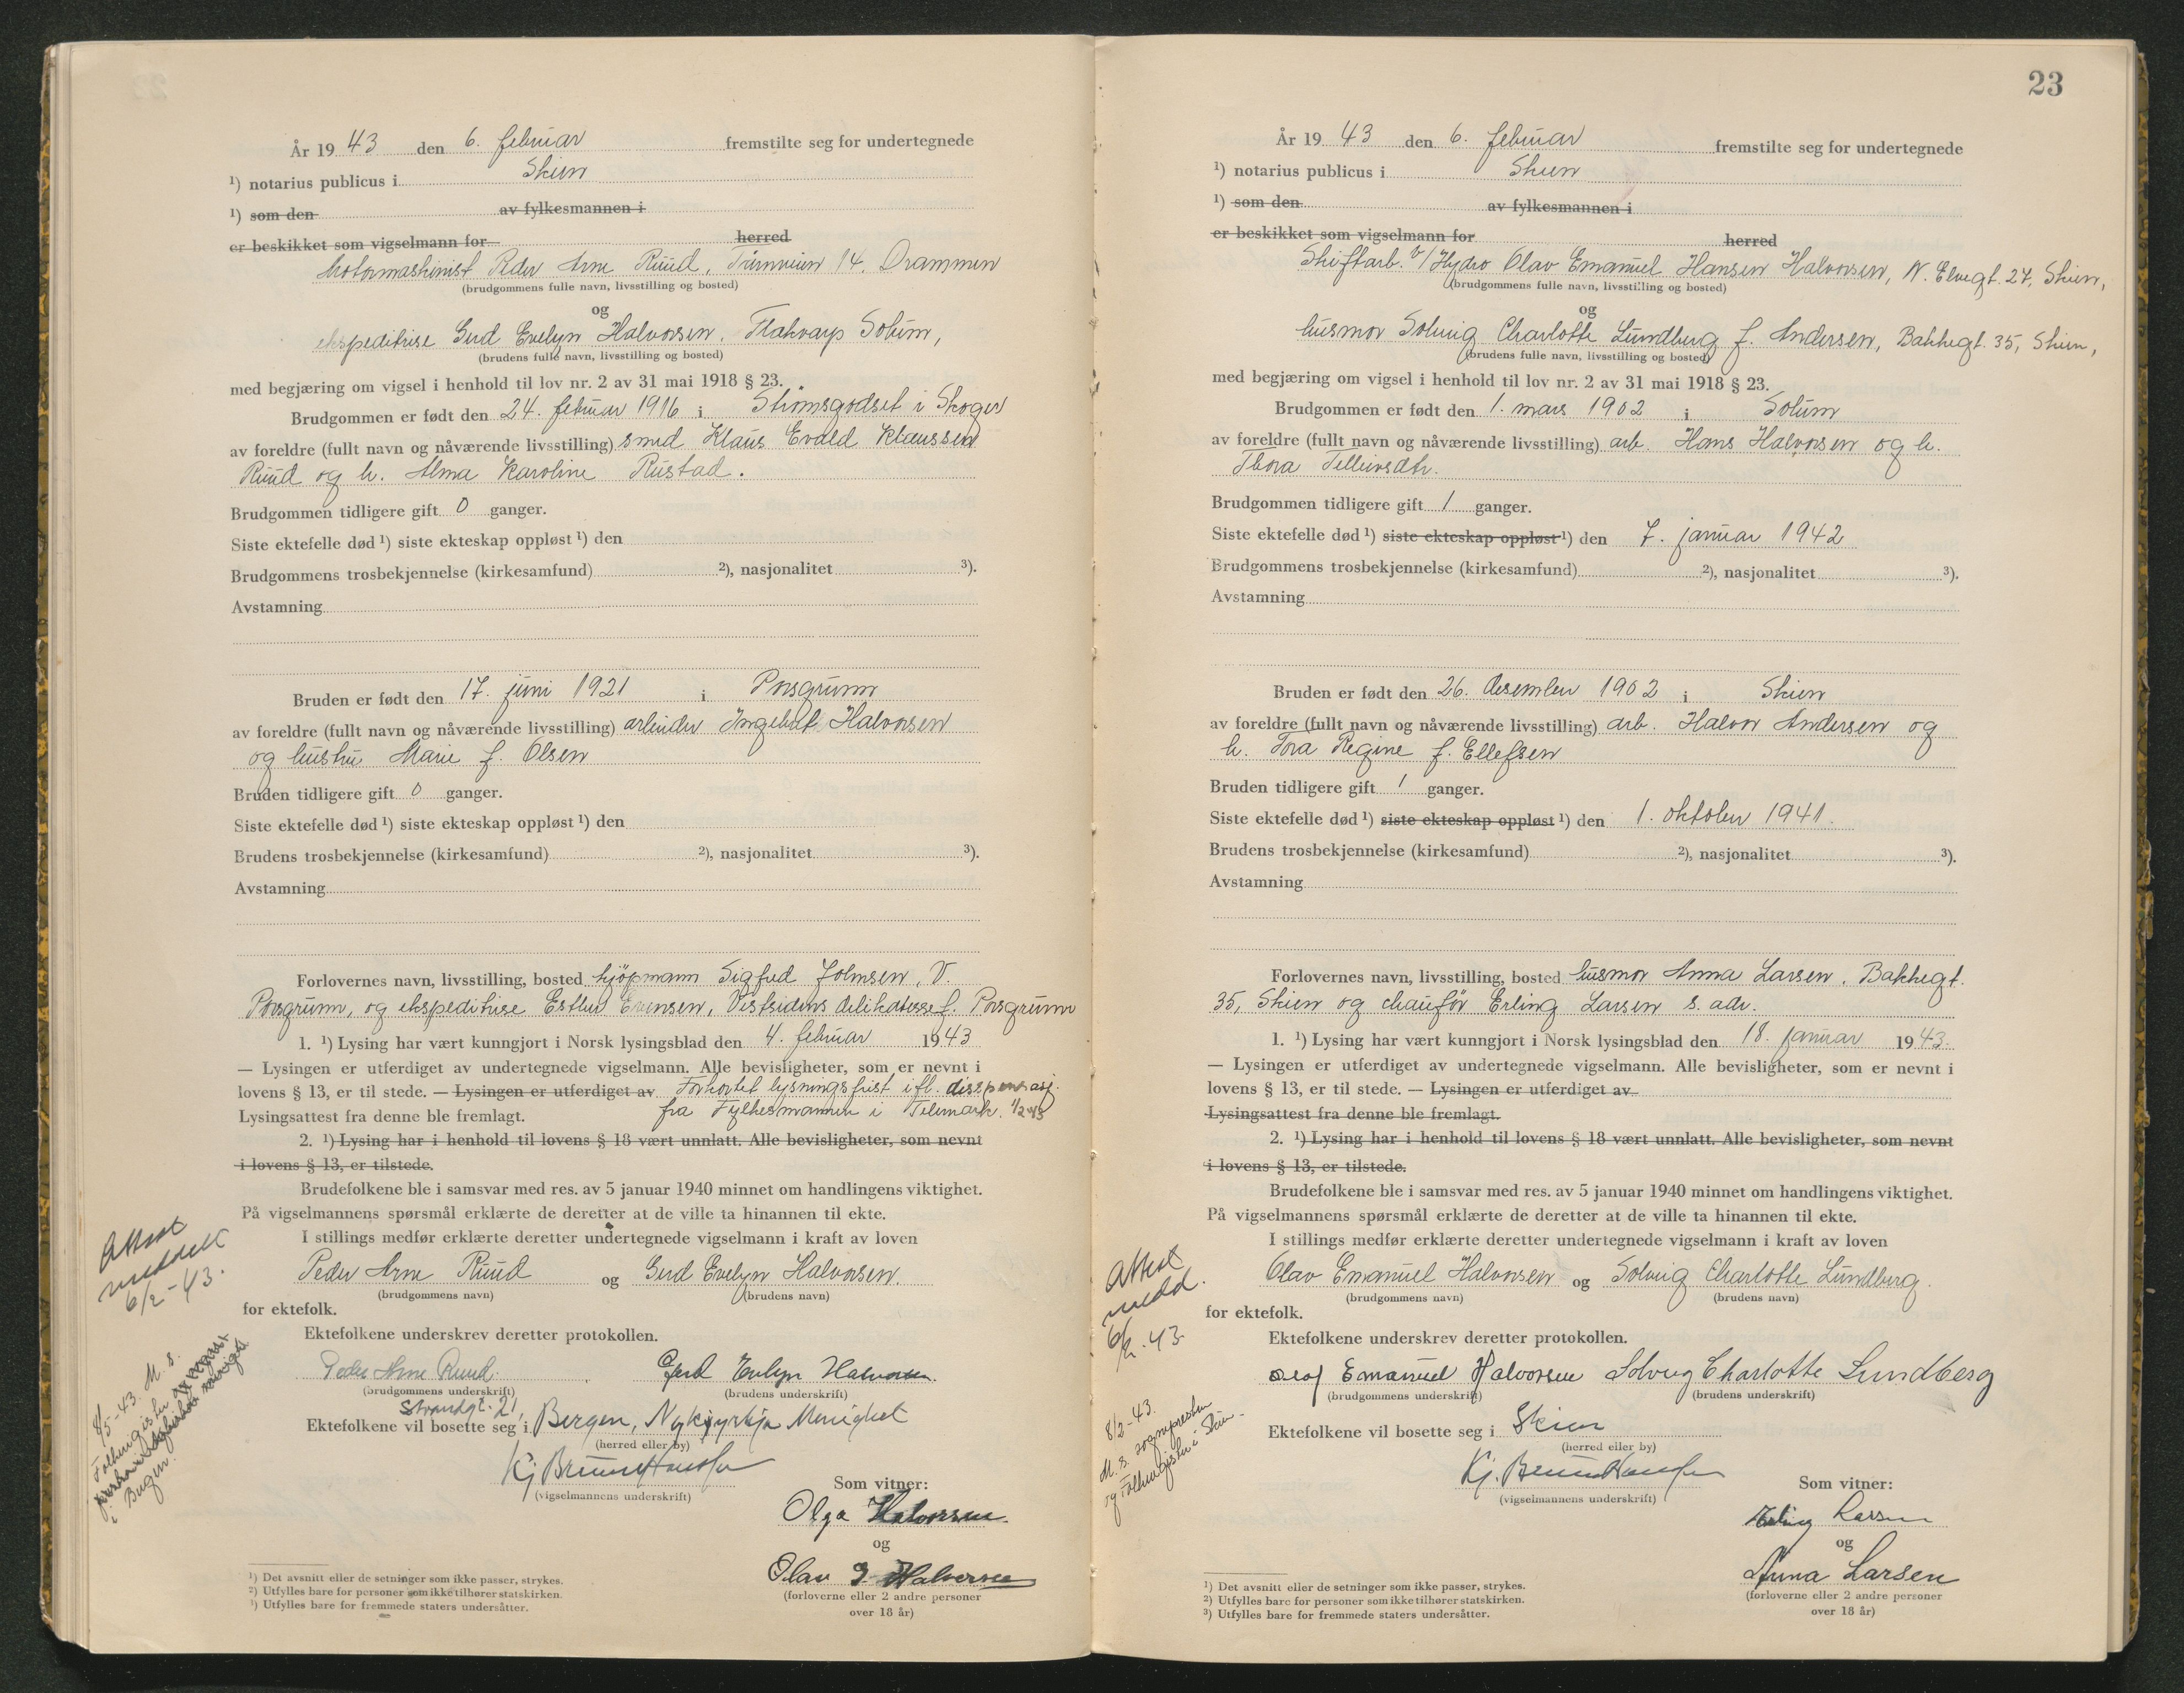 År 1943 den 6. februar fremstilte seg for undertegnede
¹) notarius publicus i Skien
¹) som den av fylkesmannen i
er beskikket som vigselmann for herred
Motormaskinist Peder Arne Ruud, 14. Drammen
(brudgommens fulle navn, livsstilling og bosted)
og
ekspeditrise Gerd Evelyn Halvorsen, Flakvarp Solum,
(brudens fulle navn, livsstilling og bosted)
med begjæring om vigsel i henhold til lov nr. 2 av 31 mai 1918 § 23.
Brudgommen er født den 24. februar 1916 i Strømsgodset i Skoger
av foreldre (fullt navn og nåværende livsstilling) smed Klaus Evald Klaussen
Ruud og h. Alma Karoline Rustad.
Brudgommen tidligere gift 0 ganger.
Siste ektefelle død ¹) siste ekteskap oppløst ¹) den
Brudgommens trosbekjennelse (kirkesamfund) ²), nasjonalitet ³).
Avstamning
Bruden er født den 17. juni 1921 i Porsgrunn
av foreldre (fullt navn og nåværende livsstilling) arbeider Ingebret Halvorsen
og hustru Marie f. Olsen
Bruden tidligere gift 0 ganger.
Siste ektefelle død ¹) siste ekteskap oppløst ¹) den
Brudens trosbekjennelse (kirkesamfund) ²), nasjonalitet ³).
Avstamning
Forlovernes navn, livsstilling, bosted kjöpmann Sigfred Johnsen, V.
Porsgrunn, og ekspeditrise Esther Evensen, Vestsidens delikatessef. Porsgrunn
1. ¹) Lysing har vært kunngjort i Norsk lysingsblad den 4. februar 1943
— Lysingen er utferdiget av undertegnede vigselmann. Alle bevisligheter, som er nevnt i
lovens § 13, er til stede. — Lysingen er utferdiget av Forkortet lysningsfrist ifl. disspensasj.
Lysingsattest fra denne ble fremlagt. fra Fylkesmannen i Telemark. 1/2 43
2. ¹) Lysing har i henhold til lovens § 18 vært unnlatt. Alle bevisligheter, som nevnt
i lovens § 13, er tilstede.
Brudefolkene ble i samsvar med res. av 5 januar 1940 minnet om handlingens viktighet.
På vigselmannens spørsmål erklærte de deretter at de ville ta hinannen til ekte.
I stillings medfør erklærte deretter undertegnede vigselmann i kraft av loven
Peder Arne Ruud og Gerd Evelyn Halvorsen.
(brudgommens navn) (brudens navn)
for ektefolk.
Ektefolkene underskrev deretter protokollen.
Peder Arne Ruud. Gerd Evelyn Halvorsen.
(brudgommens underskrift) (brudens underskrift)
Strandgt. 21,
Ektefolkene vil bosette seg i Bergen, Nykyrkja Menighet
(herred eller by)
(vigselmannens underskrift)
Som vitner:
Olga Halvorsen.
og
Olav J Halvorsen
(forloverne eller 2 andre personer
over 18 år)
Attest
meddelt
6/2-43.
8/5-43. M. s.
Folkeregistr.
i Bergen.
¹) Det avsnitt eller de setninger som ikke passer, strykes.
²) Utfylles bare for personer som ikke tilhører statskirken.
³) Utfylles bare for fremmede staters undersåtter.
23
År 1943 den 6. februar fremstilte seg for undertegnede
¹) notarius publicus i Skien
¹) som den av fylkesmannen i
er beskikket som vigselmann for herred
Skiftarb. v/Hydro Olav Emanuel Hansen Halvorsen, N. Elvegt. 27, Skien,
(brudgommens fulle navn, livsstilling og bosted)
og
husmor Solveig Charlotte Lundberg f. Andersen, Bakkegt. 35, Skien,
(brudens fulle navn, livsstilling og bosted)
med begjæring om vigsel i henhold til lov nr. 2 av 31 mai 1918 § 23.
Brudgommen er født den 1. mars 1902 i Solum
av foreldre (fullt navn og nåværende livsstilling) arb. Hans Halvorsen og h.
Thora Tellevsdtr.
Brudgommen tidligere gift 1 ganger.
Siste ektefelle død ¹) siste ekteskap oppløst ¹) den 7. januar 1942
Brudgommens trosbekjennelse (kirkesamfund) ²), nasjonalitet ³).
Avstamning
Bruden er født den 26. desember 1902 i Skien
av foreldre (fullt navn og nåværende livsstilling) arb. Halvor Andersen og
h. Tora Regine f. Ellefsen
Bruden tidligere gift 1 ganger.
Siste ektefelle død ¹) siste ekteskap oppløst ¹) den 1. oktober 1941.
Brudens trosbekjennelse (kirkesamfund) ²), nasjonalitet ³).
Avstamning
Forlovernes navn, livsstilling, bosted husmor Anna Larsen, Bakkegt.
35, Skien og chaufför Erling Larsen s. adr.
1. ¹) Lysing har vært kunngjort i Norsk lysingsblad den 18. januar 1943.
— Lysingen er utferdiget av undertegnede vigselmann. Alle bevisligheter, som er nevnt i
lovens § 13, er til stede. — Lysingen er utferdiget av
Lysingsattest fra denne ble fremlagt.
2. ¹) Lysing har i henhold til lovens § 18 vært unnlatt. Alle bevisligheter, som nevnt
i lovens § 13, er tilstede.
Brudefolkene ble i samsvar med res. av 5 januar 1940 minnet om handlingens viktighet.
På vigselmannens spørsmål erklærte de deretter at de ville ta hinannen til ekte.
I stillings medfør erklærte deretter undertegnede vigselmann i kraft av loven
Olav Emanuel Halvorsen og Solveig Charlotte Lundberg.
(brudgommens navn) (brudens navn)
for ektefolk.
Ektefolkene underskrev deretter protokollen.
Olaf Emanuel Halvorsen Solveig Charlotte Lundberg
(brudgommens underskrift) (brudens underskrift)
Ektefolkene vil bosette seg i Skien
(herred eller by)
(vigselmannens underskrift)
Som vitner:
Erling Larsen
og
Anna Larsen
(forloverne eller 2 andre personer
over 18 år)
Attest
medd.
6/2.43
8/2-43.
M. s. sognepresten
og Folkeregistr. i Skien.
¹) Det avsnitt eller de setninger som ikke passer, strykes.
²) Utfylles bare for personer som ikke tilhører statskirken.
³) Utfylles bare for fremmede staters undersåtter.